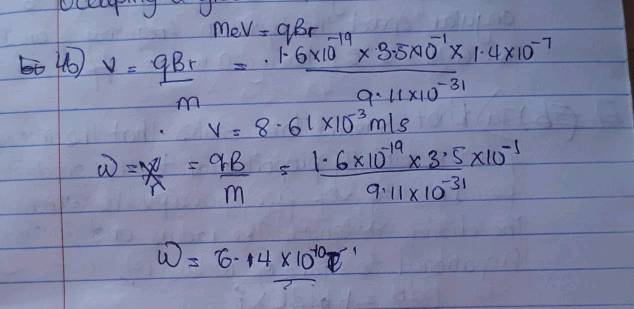 occupying a
MeV = qBr
4b) V = qBr/m = 1.6×10⁻¹⁹ × 3.5×10⁻¹ × 1.4×10⁻⁷ / 9.11×10⁻³¹
V = 8.61×10⁻³ m/s
ω = qB/m = 1.6×10⁻¹⁹ × 3.5×10⁻¹ / 9.11×10⁻³¹
ω = 6.14×10¹⁰